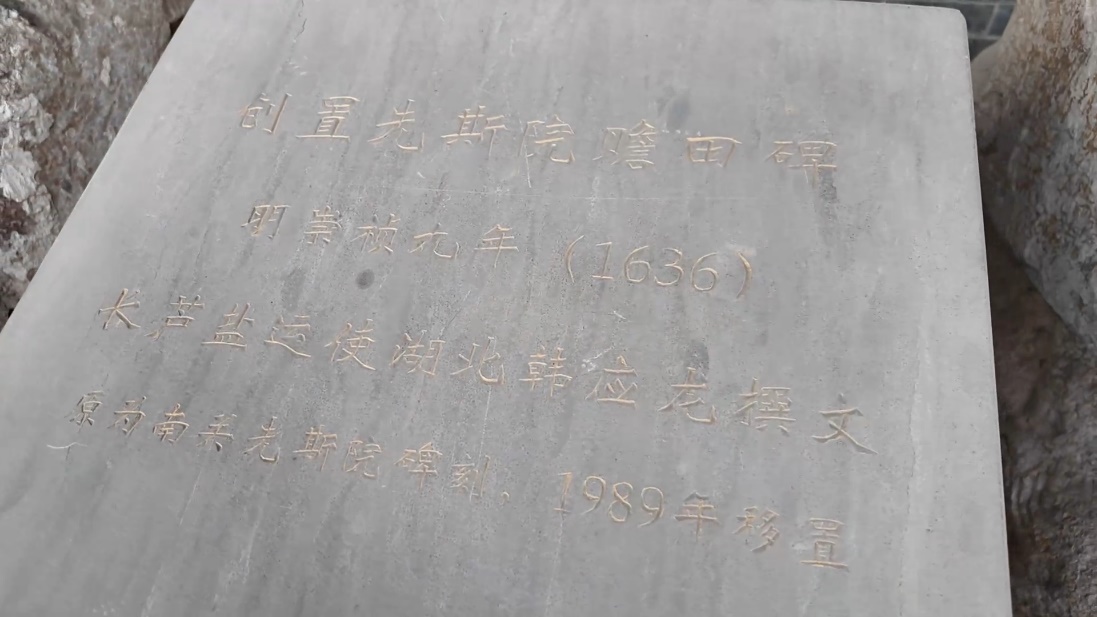 创置先斯院瞻田碑
明崇祯九年（1636）
长芦盐运使湖北韩应龙撰文
原为南关先斯院碑刻．1989年移置